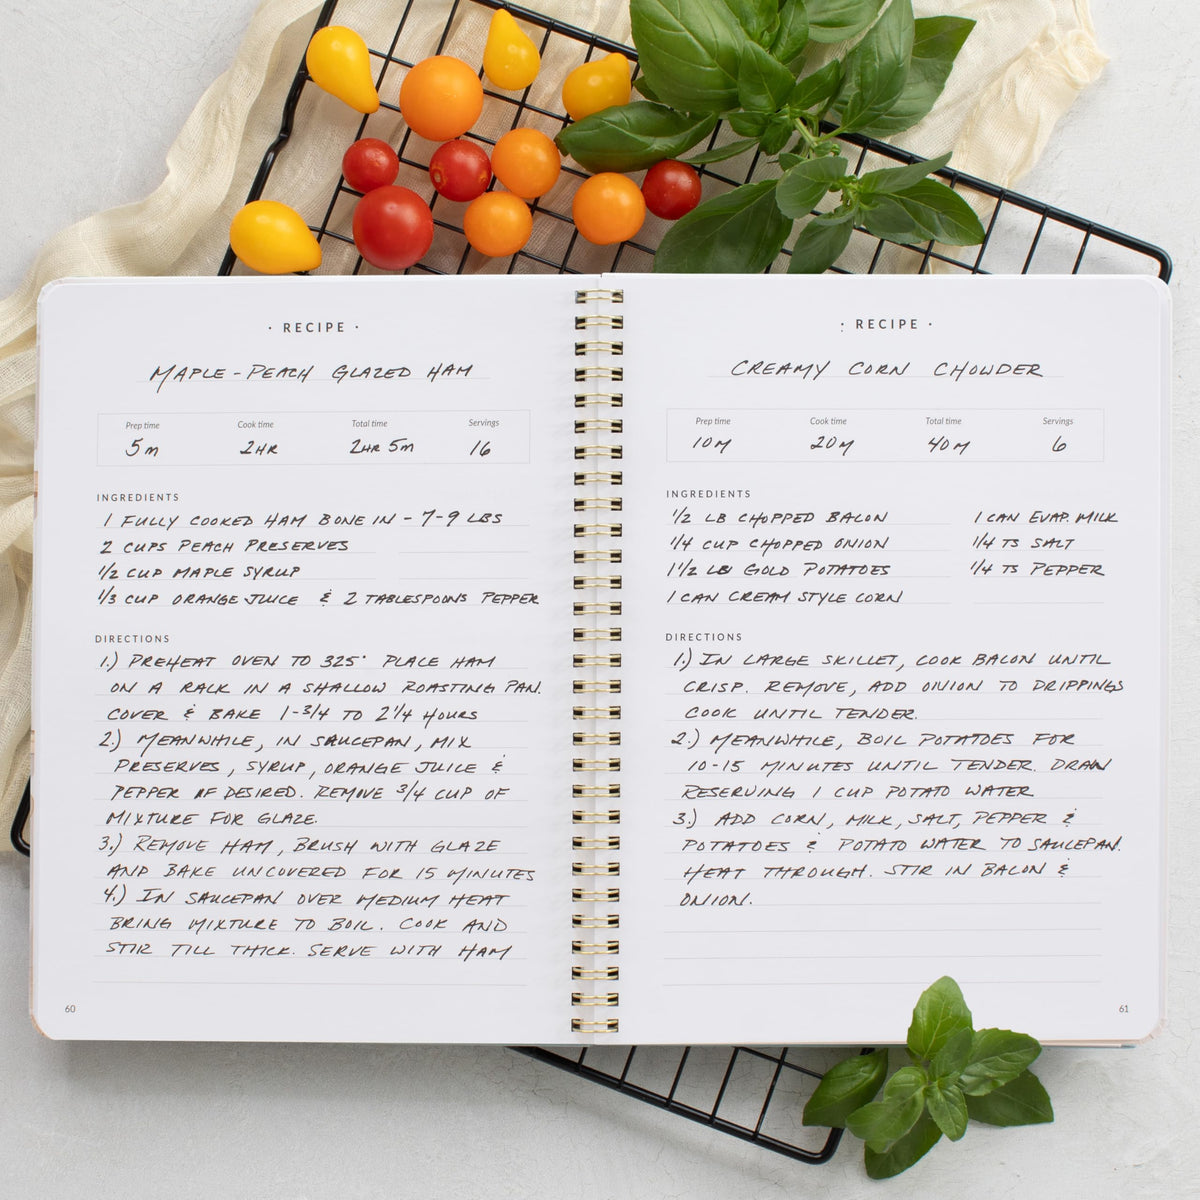 · RECIPE ·
MAPLE-PEACH GLAZED HAM
Prep time Cook time Total time Servings
5m 2HR 2HR 5m 16
INGREDIENTS
1 FULLY COOKED HAM BONE IN - 7-9 LBS
2 CUPS PEACH PRESERVES
1/2 CUP MAPLE SYRUP
1/3 CUP ORANGE JUICE & 2 TABLESPOONS PEPPER
DIRECTIONS
1.) PREHEAT OVEN TO 325° PLACE HAM
ON A RACK IN A SHALLOW ROASTING PAN.
COVER & BAKE 1-3/4 TO 2 1/4 HOURS
2.) MEANWHILE, IN SAUCEPAN, MIX
PRESERVES, SYRUP, ORANGE JUICE &
PEPPER IF DESIRED. REMOVE 3/4 CUP OF
MIXTURE FOR GLAZE.
3.) REMOVE HAM, BRUSH WITH GLAZE
AND BAKE UNCOVERED FOR 15 MINUTES
4.) IN SAUCEPAN OVER MEDIUM HEAT
BRING MIXTURE TO BOIL. COOK AND
STIR TILL THICK. SERVE WITH HAM
60
· RECIPE ·
CREAMY CORN CHOWDER
Prep time Cook time Total time Servings
10M 20M 40M 6
INGREDIENTS
1/2 LB CHOPPED BACON 1 CAN EVAP. MILK
1/4 CUP CHOPPED ONION 1/4 TS SALT
1 1/2 LB GOLD POTATOES 1/4 TS PEPPER
1 CAN CREAM STYLE CORN
DIRECTIONS
1.) IN LARGE SKILLET, COOK BACON UNTIL
CRISP. REMOVE, ADD ONION TO DRIPPINGS
COOK UNTIL TENDER.
2.) MEANWHILE, BOIL POTATOES FOR
10-15 MINUTES UNTIL TENDER. DRAIN
RESERVING 1 CUP POTATO WATER
3.) ADD CORN, MILK, SALT, PEPPER &
POTATOES & POTATO WATER TO SAUCEPAN.
HEAT THROUGH. STIR IN BACON &
ONION.
61